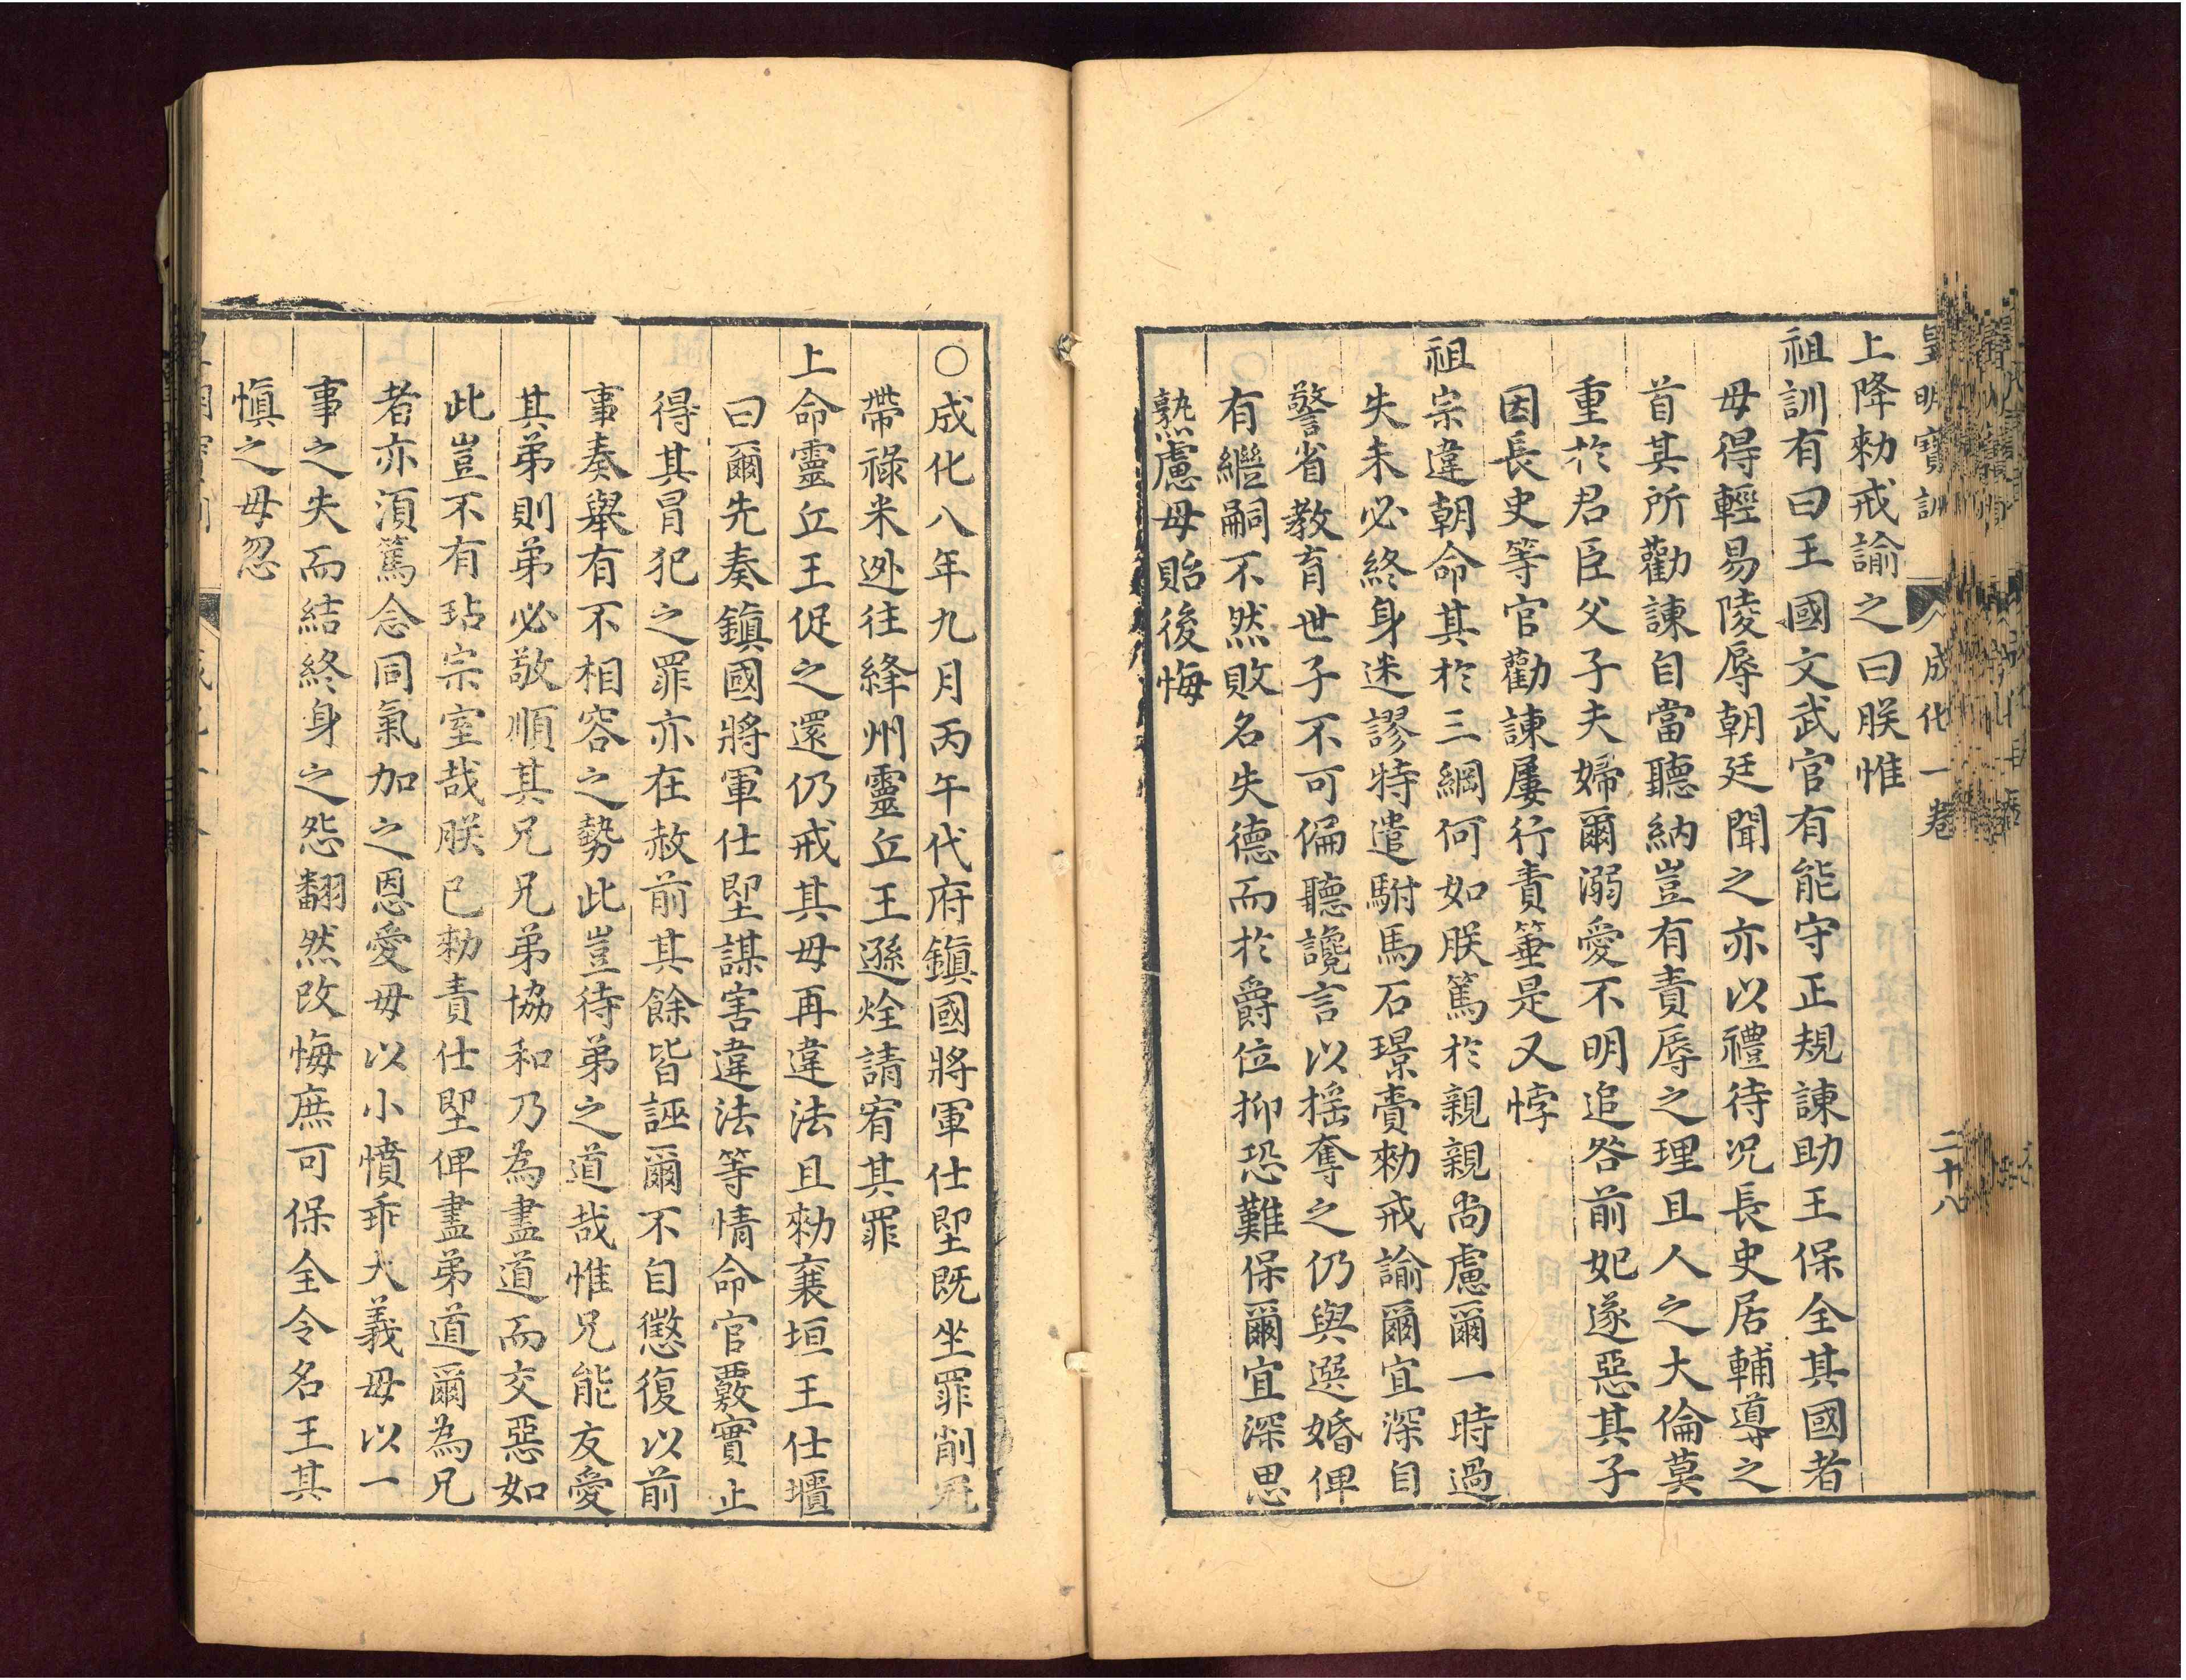 皇明寶訓 成化一卷 二十八
上降勑戒諭之曰朕惟
祖訓有曰王國文武官有能守正規諫助王保全其國者
毋得輕易陵辱朝廷聞之亦以禮待况長史居輔導之
首其所勸諫自當聽納豈有責辱之理且人之大倫莫
重於君臣父子夫婦爾溺愛不明追咎前妃遂惡其子
因長史等官勸諫屢行責箠是又悖
祖宗違朝命其於三綱何如朕篤於親親尚慮爾一時過
失未必終身迷謬特遣駙馬石璟賫勑戒諭爾宜深自
警省教育世子不可偏聽讒言以揺奪之仍與選婚俾
有繼嗣不然敗名失德而於爵位抑恐難保爾宜深思
熟慮毋貽後悔
○成化八年九月丙午代府鎮國將軍仕𡊟既坐罪削冠
帶祿米迯往絳州靈丘王遜烇請宥其罪
上命靈丘王促之還仍戒其毋再違法且勑襄垣王仕㙺
曰爾先奏鎮國將軍仕𡊟謀害違法等情命官覈實止
得其冒犯之罪亦在赦前其餘皆誣爾不自懲復以前
事奏舉有不相容之勢此豈待弟之道哉惟兄能友愛
其弟則弟必敬順其兄兄弟協和乃為盡道而交惡如
此豈不有玷宗室哉朕已勑責仕𡊟俾盡弟道爾為兄
者亦湏篤念同氣加之恩愛毋以小憤乖大義毋以一
事之失而結終身之怨翻然改悔庶可保全令名王其
慎之毋忽